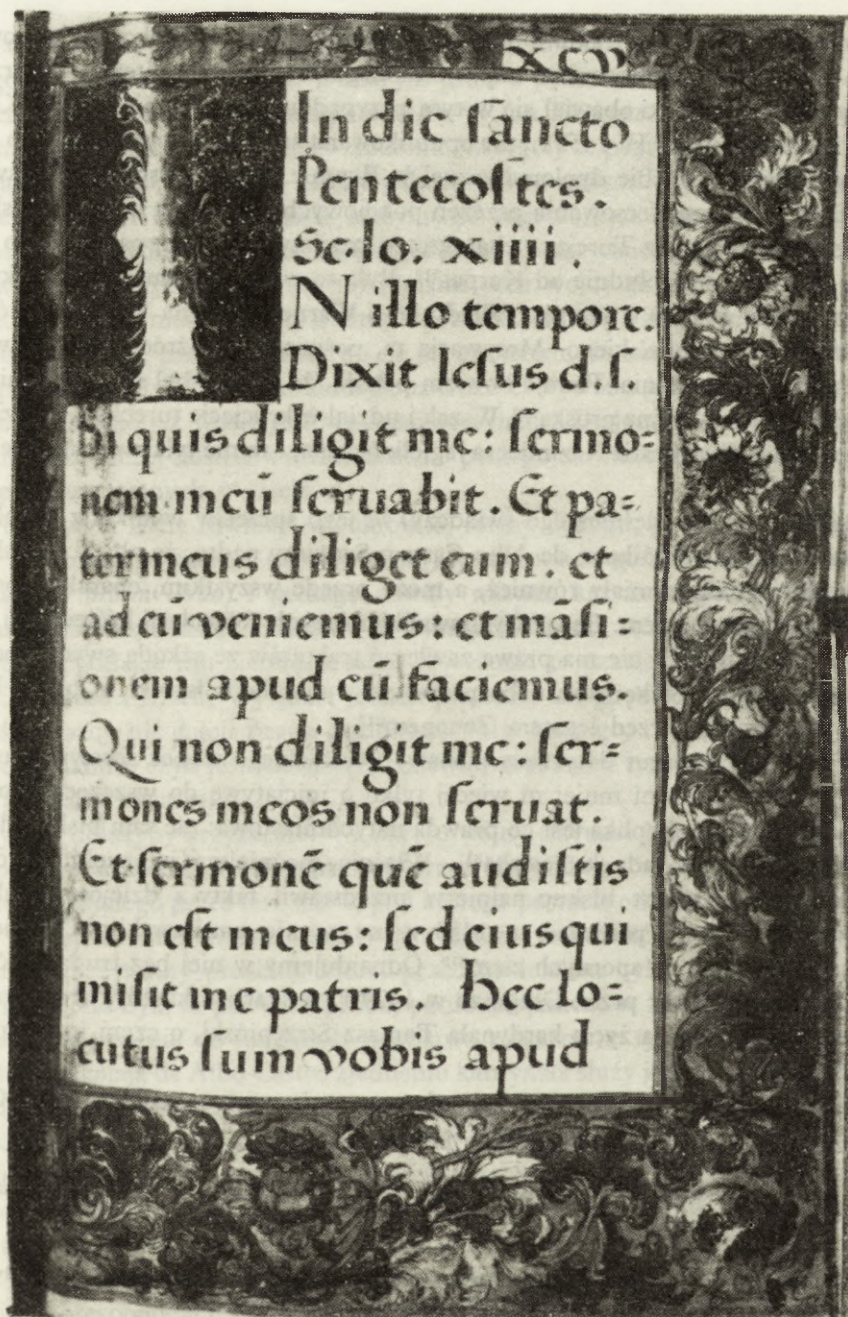 XCV
In die ſancto
Pentecoſtes.
Sc. Io. xiiii.
N illo tempore.
Dixit Ieſus d. ſ.
Si quis diligit me: ſermo=
nem meū ſeruabit. Et pa=
ter meus diliget eum. et
ad eū veniemus: et māſi=
onem apud eū faciemus.
Qui non diligit me: ſer=
mones meos non ſeruat.
Et ſermonē quē audiſtis
non eſt meus: ſed eius qui
miſit me patris. Hec lo=
cutus ſum vobis apud